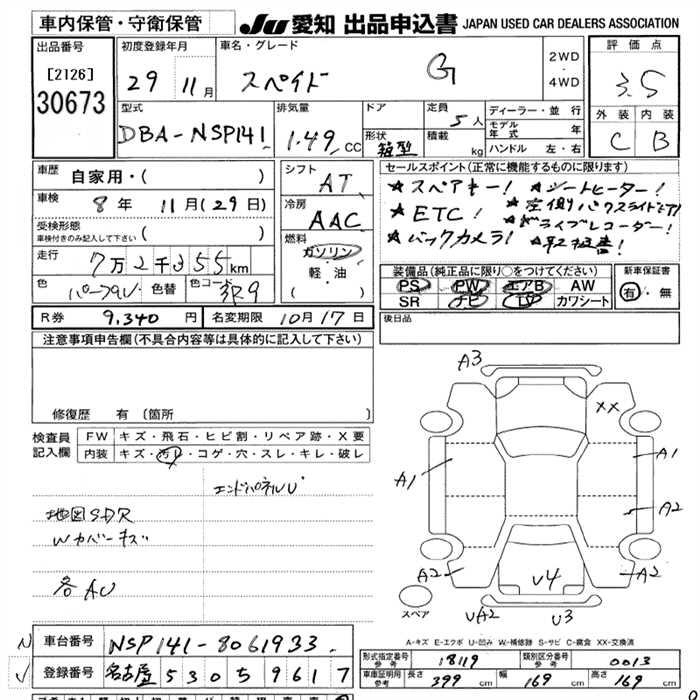 車内保管・守衛保管
JU 愛知 出品申込書 JAPAN USED CAR DEALERS ASSOCIATION
出品番号 初度登録年月 車名・グレード 評価点
[2126] 29 11月 スペイド G 2WD ・ 4WD 3.5
30673
型式 排気量 ドア 定員 5人 ディーラー・並行 外装 内装
DBA-NSP141 1.49 CC 形状 箱型 積載 kg モデル年式 年 C B
ハンドル 左・右
車歴 自家用・( ) シフト AT セールスポイント(正常に機能するものに限ります)
車検 8年 11月(29日) 冷房 AAC ★スペアキー! ★シートヒーター!
受検形態 ( ) ★ETC! ★左側パワスライドドア!
車検付きのみ記入して下さい 燃料 ★ドライブレコーダー!
走行 7万2千355km ガソリン ★バックカメラ!
色 パープルV 色替 色コード 3R9 軽・油 ( )
装備品(純正品に限り○をつけてください) 新車保証書
PS PW エアB AW 有・無
SR ナビ TV カワシート
R券 9,340円 名変期限 10月17日 後日品
注意事項申告欄(不具合内容等は具体的に記入して下さい)
修復歴 有〔箇所 〕
検査員記入欄 FW キズ・飛石・ヒビ割・リペア跡・X要
内装 キズ・汚レ・コゲ・穴・スレ・キレ・破レ
エンドパネルU
地図SDR
Wカバーキズ
各AU
A3
XX
A1 A1
A2
A2 A2
U4
スペア UA2 U3
A-キズ E-エクボ U-凹み W-補修跡 S-サビ C-腐食 XX-交換済
N 車台番号 NSP141-8061933
登録番号 名古屋 530 5 9617
形式指定番号 参考 18119 類別区分番号 参考 0013
車庫証明用 参考 長さ 399 cm 幅 169 cm 高さ 169 cm